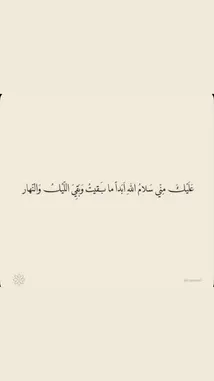 عَلَيْكَ مِنِّي سَلامُ اللهِ اَبَداً ما بَـقيتُ وَبَقِيَ اللَّيْلُ وَالنَّهار